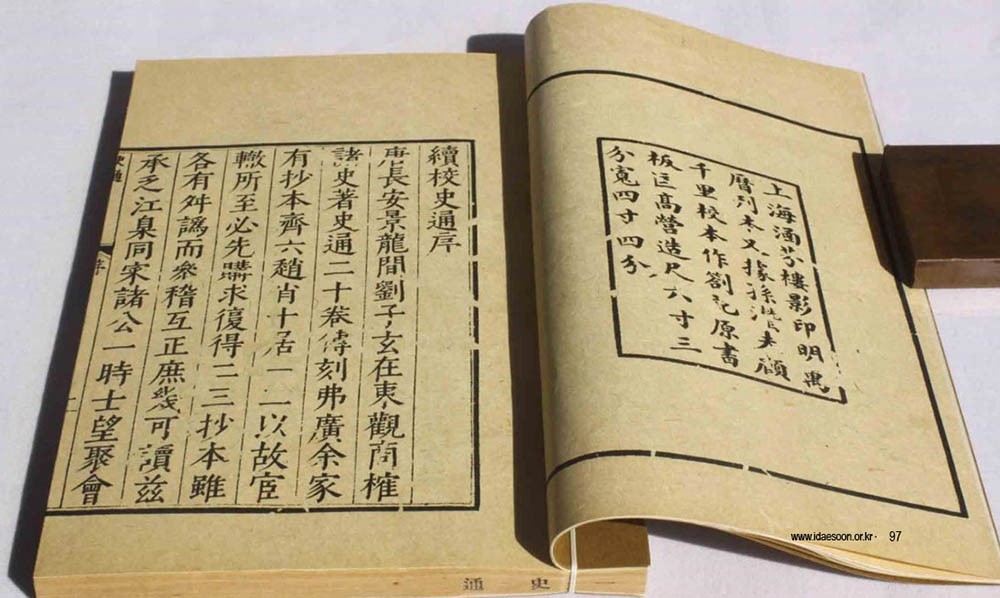 上海涵芬樓影印明萬
曆刋本又據孫潛夫顧
千里校本作劄記原書
板匡高營造尺六寸三
分寬四寸四分
續校史通序
唐長安景龍間劉子玄在東觀商榷
諸史著史通二十卷傳刻弗廣余家
有抄本齊六趙肖十居一二以故宦
轍所至必先購求復得二三抄本雖
各有舛譌而參稽互正庶幾可讀茲
承乏江臬同寀諸公一時士望聚會
序
一 史 通
www.idaesoon.or.kr · 97